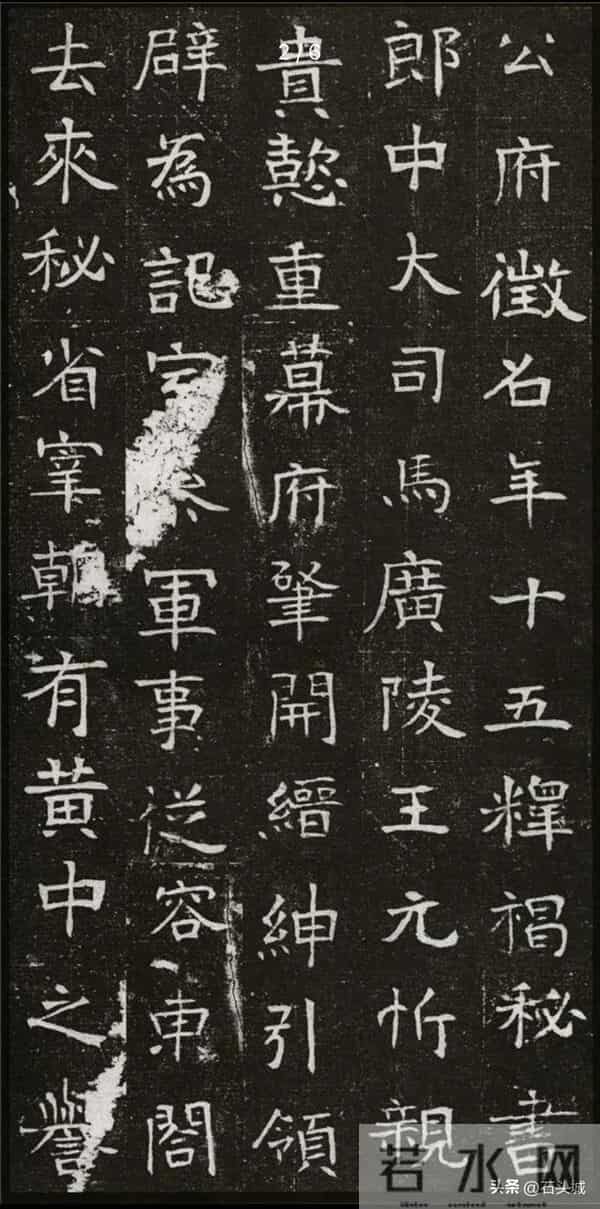 公府徵名年十五釋褐秘書
郎中大司馬廣陵王元忻親
貴懿重幕府肇開縉紳引領
辟為記室參軍事從容東閤
去來秘省宰朝有黃中之譽
2/6
若水网
头条 @石头城